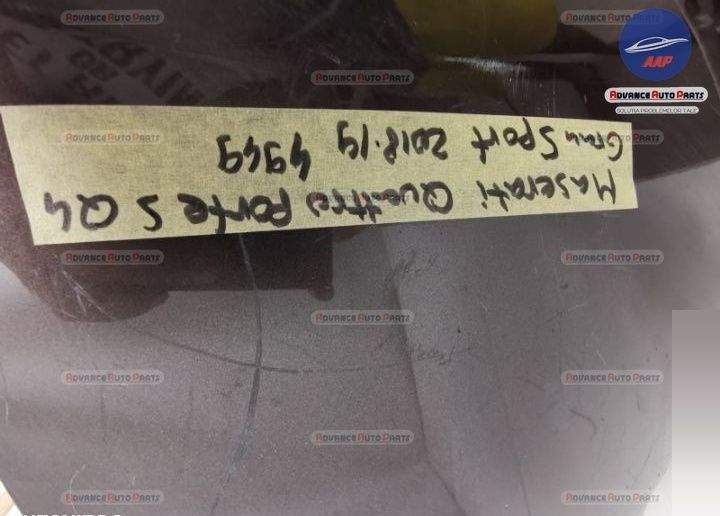 AAP
ADVANCE AUTO PARTS
SOLUTIA PROBLEMELOR TALE
Maserati Quattro Porte S Q4
Gran Sport 2018-19 4949
ADVANCE AUTO PARTS
ADVANCE AUTO PARTS
ADVANCE AUTO PARTS
ADVANCE AUTO PARTS
ADVANCE AUTO PARTS
ADVANCE AUTO PARTS
ADVANCE AUTO PARTS
ADVANCE AUTO PARTS
ADVANCE AUTO PARTS
ADVANCE AUTO PARTS
ADVANCE AUTO PARTS
ADVANCE AUTO PARTS
ADVANCE AUTO PARTS